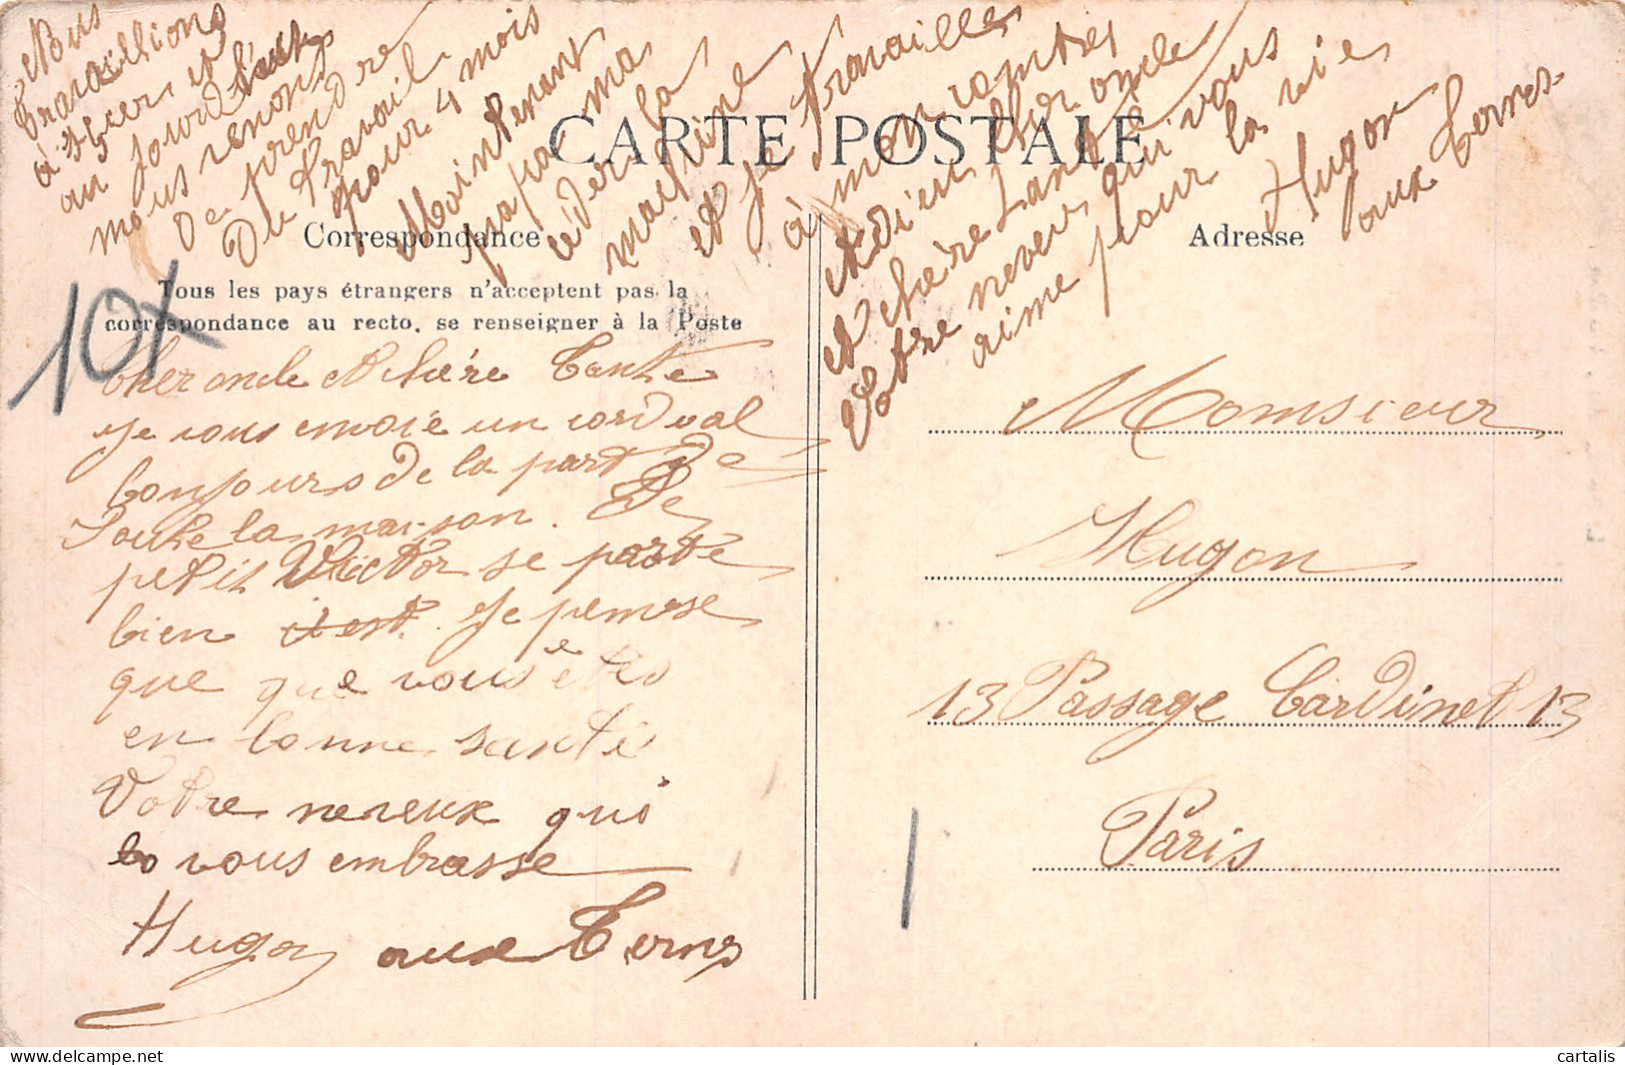 CARTE POSTALE
Correspondance
Tous les pays étrangers n'acceptent pas la
correspondance au recto, se renseigner à la Poste
Adresse
10x
Cher oncle et chère Tante
Je vous envoie un cordval
bonjours de la part de
toute la maison. Le
petit Victor se porte
bien il est. Je pemse
que que vous êtes
en bonne santé
Votre neveux qui
vous embrasse
Hugon aux Ternes
Nous
travaillions
à
au jourd'hui
nous venons
De prendre
Du travail
pour 4 mois
Maintenant
papa m'a
céder la
machine
et je travaille
à mon comptes
Adieu cher oncle
et chère Tante
Votre neveu qui vous
aime pour la vie
Hugon
aux Ternes.
Momsieur
Hugon
13 Passage Cardinet 13
Paris
cartalis